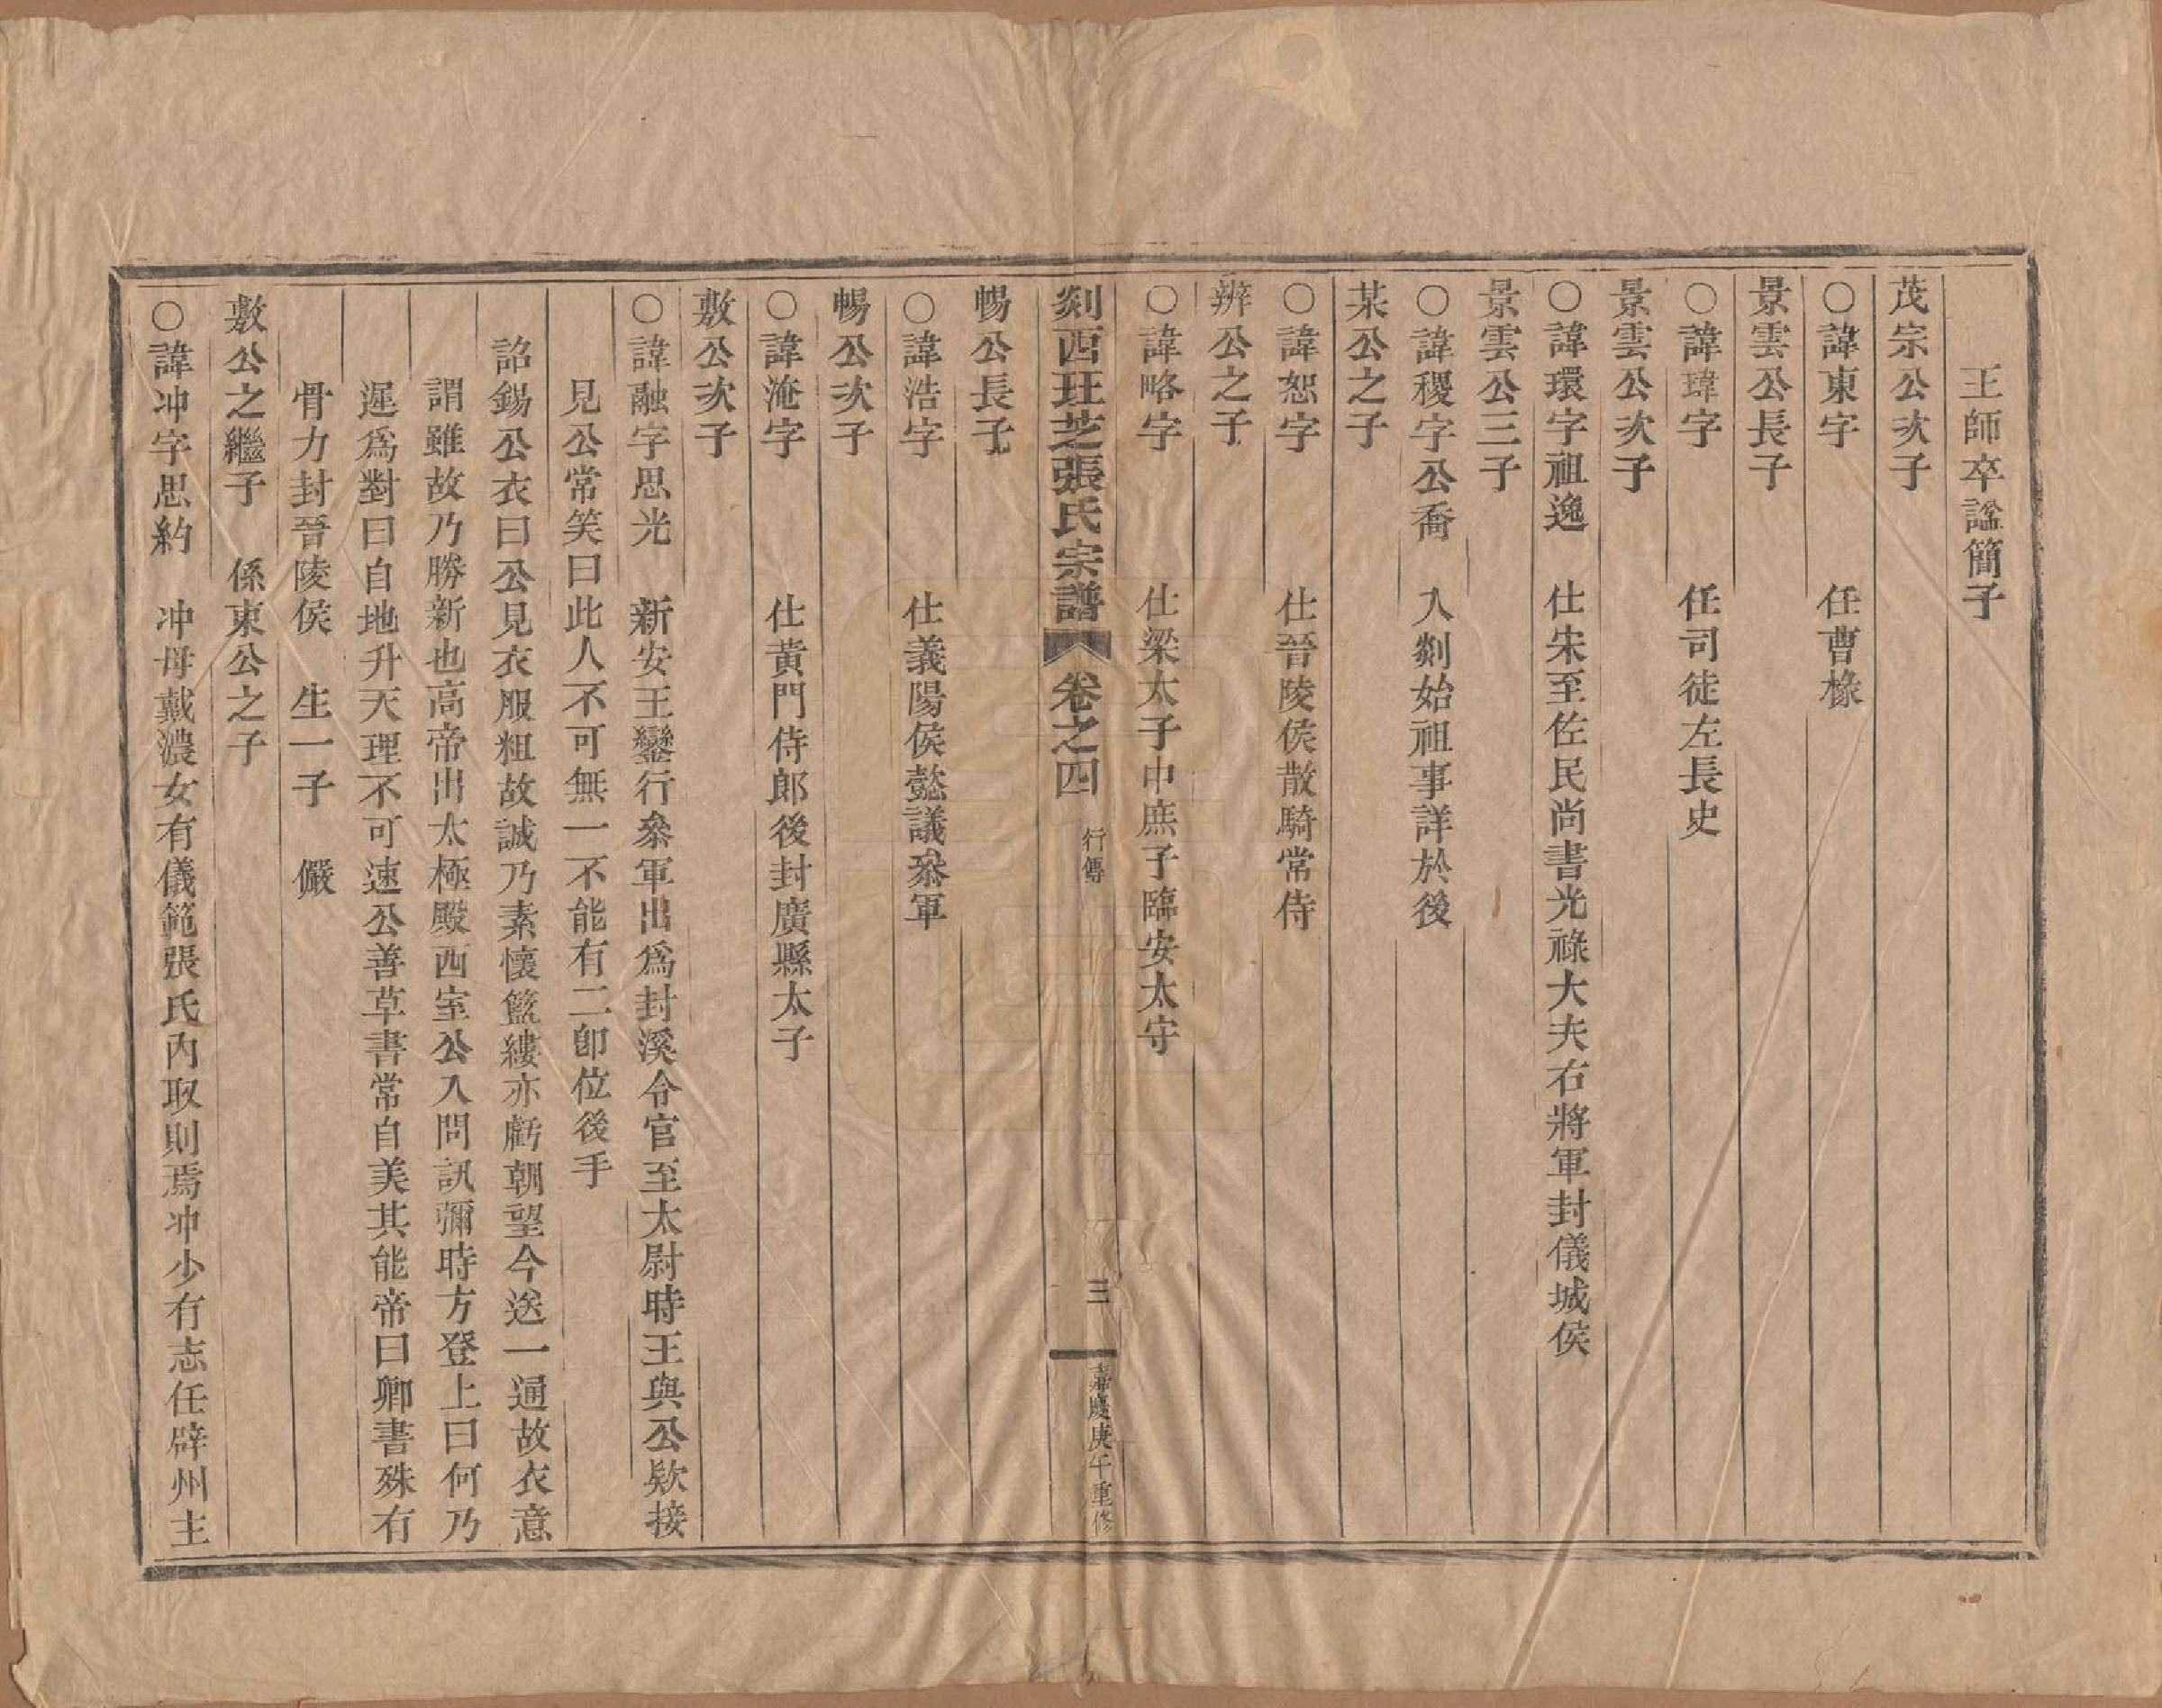 王師卒諡簡子
茂宗公次子
○諱東字　任曹椽
景雲公長子
○諱瑋字　任司徒左長史
景雲公次子
○諱環字祖逸　仕宋至佐民尚書光祿大夫右將軍封儀城侯
景雲公三子
○諱稷字公喬　入剡始祖事詳於後
某公之子
○諱恕字　仕晉陵侯散騎常侍
辨公之子
○諱略字　仕梁太子中庶子臨安太守
剡西珏芝張氏宗譜　卷之四　行傳　三　嘉慶庚午重修
暢公長子
○諱浩字　仕義陽侯懿議叅軍
暢公次子
○諱淹字　仕黃門侍郎後封廣縣太子
敷公次子
○諱融字思光　新安王鑾行叅軍出爲封溪令官至太尉時王與公欵接
見公常笑曰此人不可無一不能有二卽位後手
詔錫公衣曰公見衣服粗故誠乃素懷籃縷亦虧朝望今送一通故衣意
謂雖故乃勝新也高帝出太極殿西室公入問訊彌時方登上曰何乃
遲爲對曰自地升天理不可速公善草書常自美其能帝曰卿書殊有
骨力封晉陵侯　生一子　儼
敷公之繼子　係東公之子
○諱冲字思約　冲母戴濃女有儀範張氏內取則焉冲少有志任辟州主